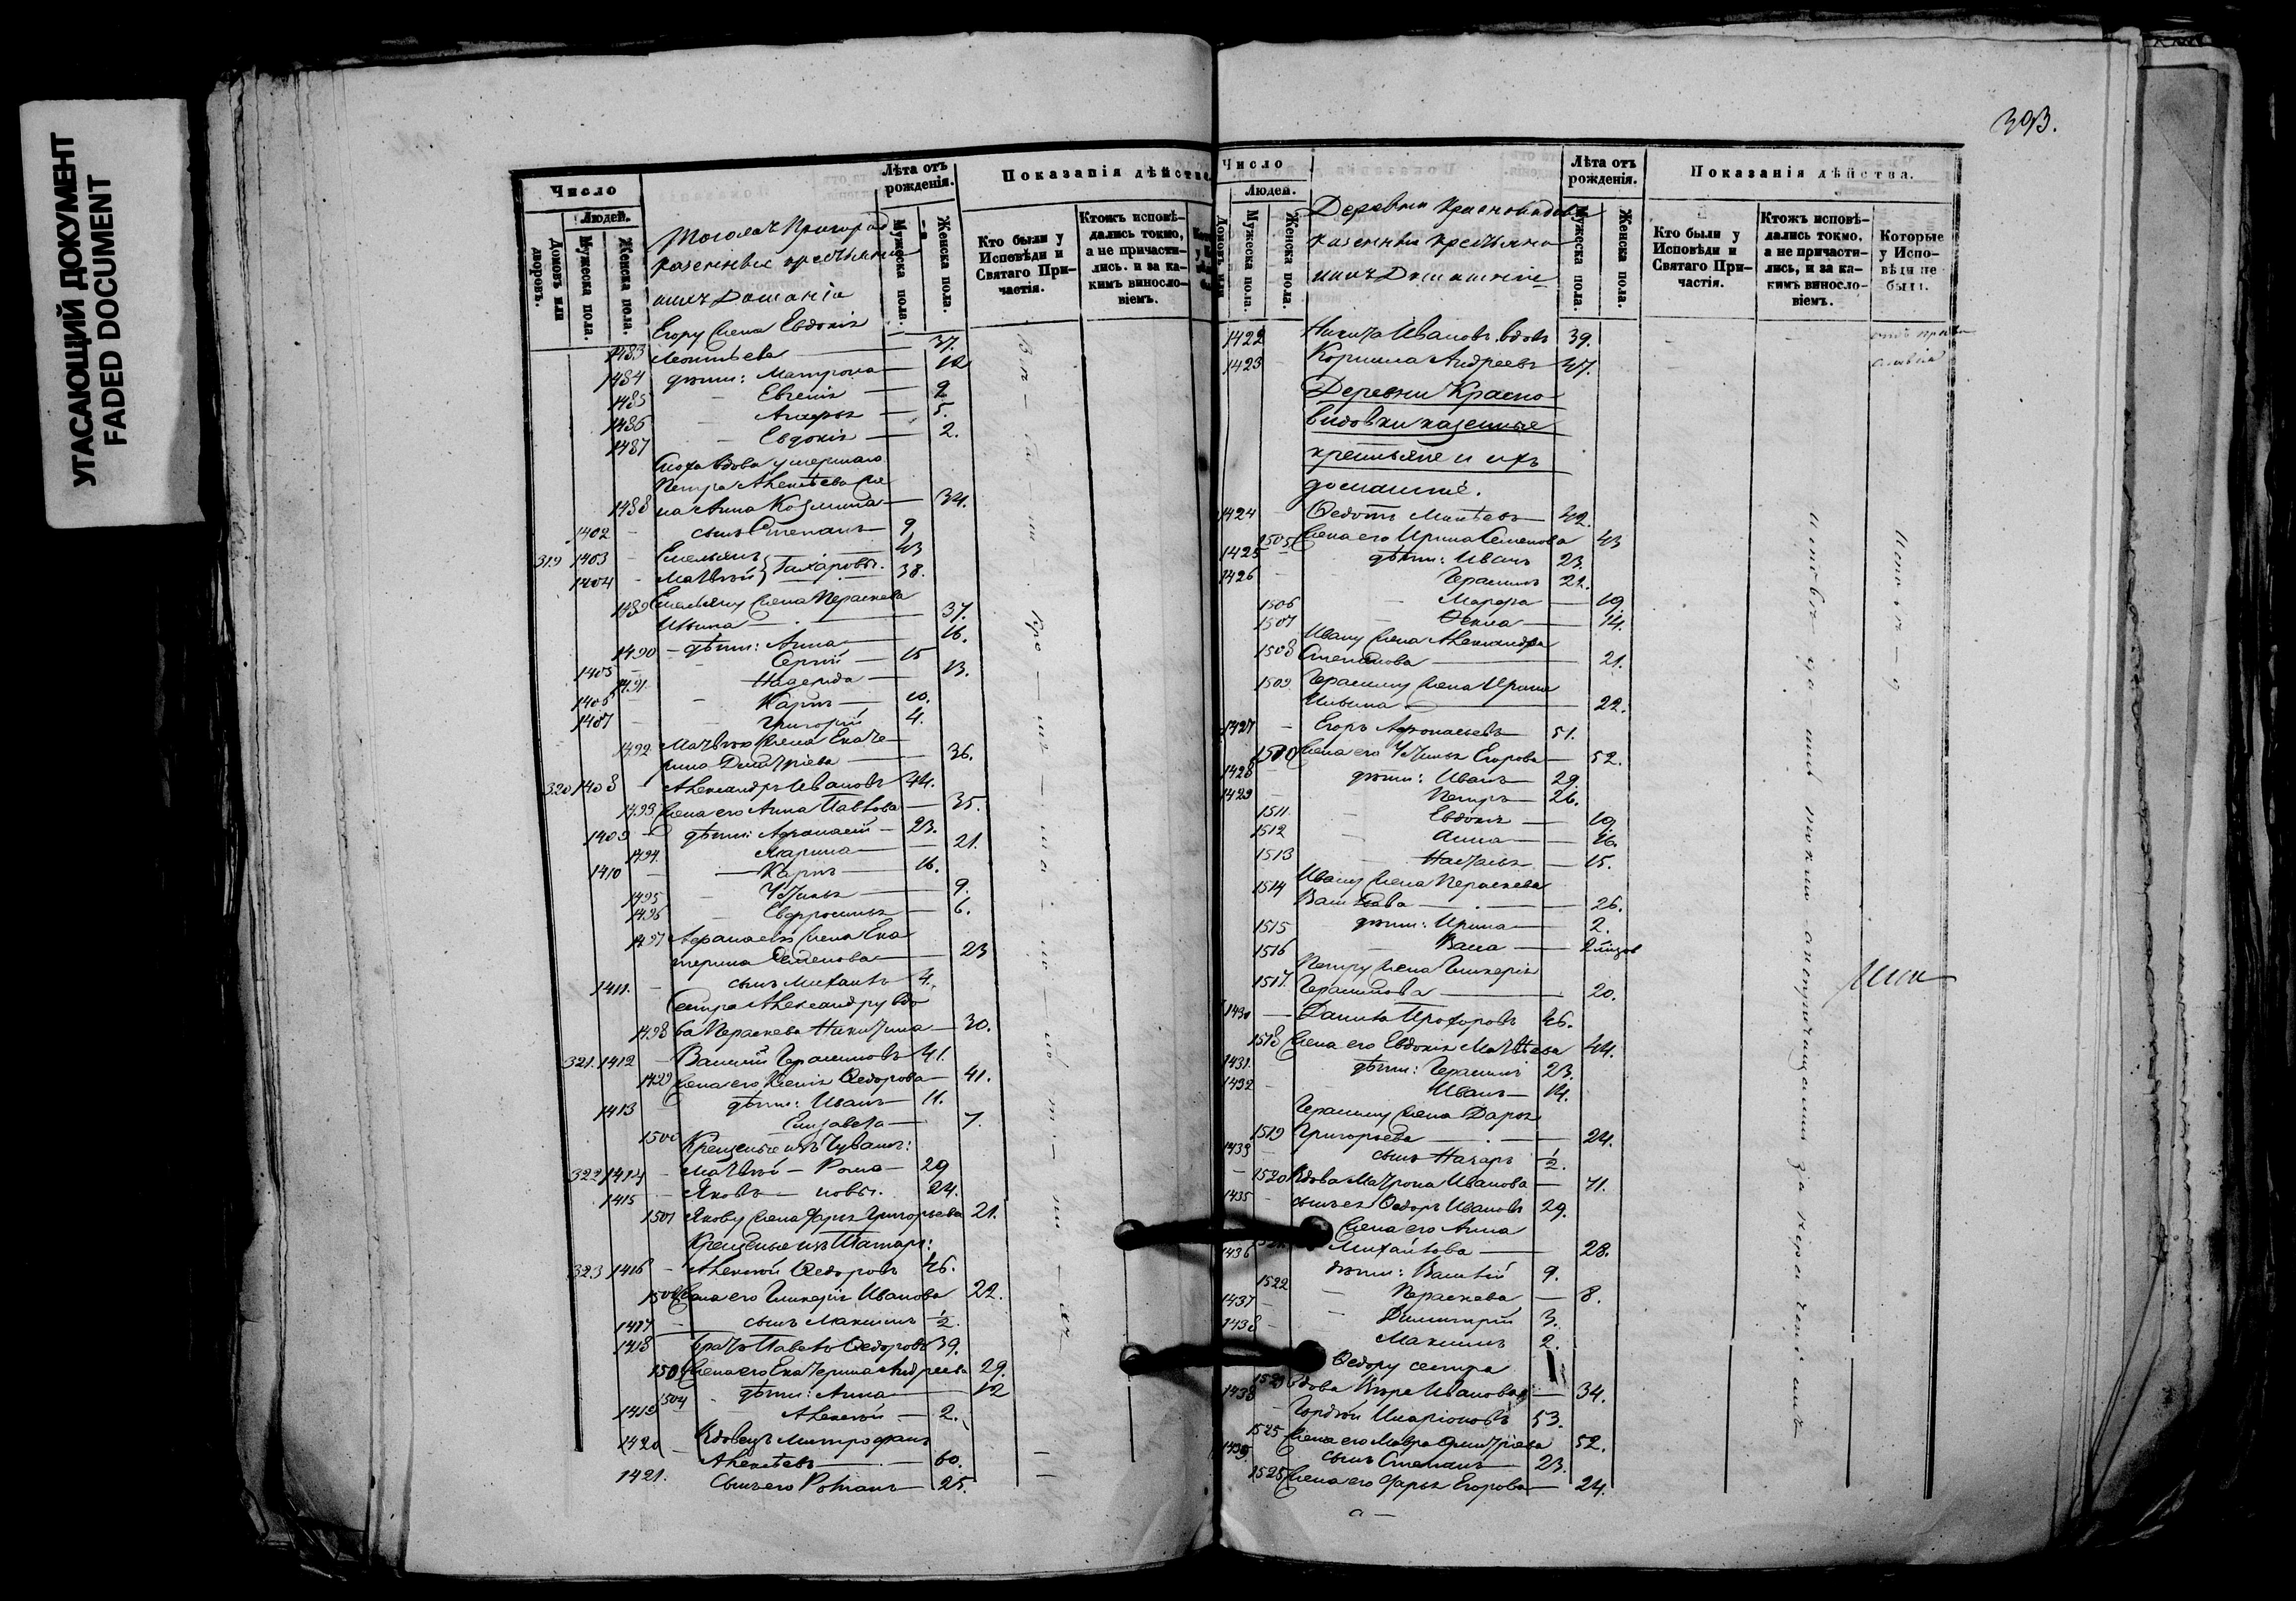 УГАСАЮЩИЙ ДОКУМЕНТ
FADED DOCUMENT
303.
Число
Людей.
Домовъ или дворовъ.
Мужеска пола.
Женска пола.
Лѣта отъ рожденія.
Мужеска пола.
Женска пола.
Показанія дѣйства
Кто были у Исповѣди и Святаго Причастія.
Ктожъ исповѣдались токмо, а не причастились. и за какимъ винословіемъ.
казенные крестьяне
ихъ Домашніе
Егору жена Евдокія
1483 Леонтьева 37.
1484 дѣти: Матрона 12
1485 Евгенія 9
1486 5.
1487 Евдокія 2.
Сноха вдова умершаго
Петра Алексѣева же
1488 на Анна Козмина 34.
1402 сынъ Степанъ 9
319 1403 Емельянъ 43
1404 Матвѣй } Захаровы. 38.
1489 Емельяну жена Пераскева
Ильина 37.
1490 дѣти: Анна 16.
1405 Сергій 15
1491 Надежда 13.
1406 Карпъ 10.
1407 Григорій 4.
1492 Матвѣю жена Екате
рина Димитріева 36.
320 1408 Александръ Ивановъ 44.
1493 жена его Анна Павлова 35.
1409 дѣти: Афанасій 23.
1494 Марина 21.
1410 Карпъ 16.
1495 Устинья 9.
1496 Евфросинья 6.
1497 Афанасію жена Ека
терина Семенова 23
1411. сынъ Михаилъ 4.
Сестра Александру вдо
1498 ва Пераскева Никитина 30.
321. 1412 Василій Герасимовъ 41.
1499 жена его Ксенія Ѳедорова 41.
1413 дѣти: Иванъ 11.
1500 Елизавета 7.
Крещеные изъ Чувашъ:
322 1414 Матвѣй Рома 29
1415 Яковъ новы. 24.
1501 Якову жена Дарья Григорьева 21.
Крещеные изъ Татаръ:
323 1416 Алексѣй Ѳедоровъ 46.
1502 жена его Гликерія Иванова 22.
1417 сынъ Максимъ ½.
1418 братъ Павелъ Ѳедоровъ 39.
1503 жена его Екатерина Андреева 29.
1504 дѣти: Анна 12
1419 Алексѣй 2.
1420 Вдовецъ Митрофанъ
Алексѣевъ 60.
1421. Сынъ его Романъ 25.
Число
Людей.
Домовъ или
Мужеска пола
Женска пола.
Лѣта отъ рожденія.
Мужеска пола.
Женска пола.
Показанія дѣйства.
Кто были у Исповѣди и Святаго Причастія.
Ктожъ исповѣдались токмо, а не причастились, и за какимъ винословіемъ.
Которые у Исповѣди не были.
Деревни Красновидовки
казенные крестьяне
ихъ Домашніе
1422 Никита Ивановъ вдовъ 39.
1423 Корнила Андреевъ 47.
Деревни Красно
видовки казенные
крестьяне и ихъ
домашніе.
1424 Ѳедотъ 42.
1505 жена его Ирина Семенова 43
1425 дѣти: Иванъ 23.
1426 Герасимъ 22.
1506 Марфа 19.
1507 Ѳекла 14.
Ивану жена Александра
1508 Степанова 21.
1509 Герасиму жена Ирина
Ильина 22.
1427 Егоръ Афонасьевъ 51.
1510 жена его Устинья Егорова 52.
1428 дѣти: Иванъ 29.
1429 Петръ 26.
1511. Евдокія 19
1512 Анна 16.
1513 Наталья 15.
Ивану жена Пераскева
1514 26.
1515 дѣти: Ирина 2.
1516
Петру жена Гликерія
1517. Герасимова 20.
1430 Данила Прохоровъ 46.
1518 жена его Евдокія Матвѣева 44.
1431. дѣти: Герасимъ 23.
1432 Иванъ 14.
Герасиму жена Дарья
1519 Григорьева 24.
1433 сынъ Назаръ ½.
1520 Вдова Матрона Иванова 71.
1435 сынъ ея Ѳедоръ Ивановъ 29.
жена его Анна
Михайлова 28.
1436 дѣти: Василій 9.
1522 Пераскева 8.
1437 Димитрій 3.
1438 Максимъ 2.
Ѳедору сестра
вдова Вѣра Иванова 34.
1438 Гордѣй Иларіоновъ 53.
1525 жена его Мавра Димитріева 52.
1439. сынъ Степанъ 23.
1525 жена его Дарья Егорова 24.